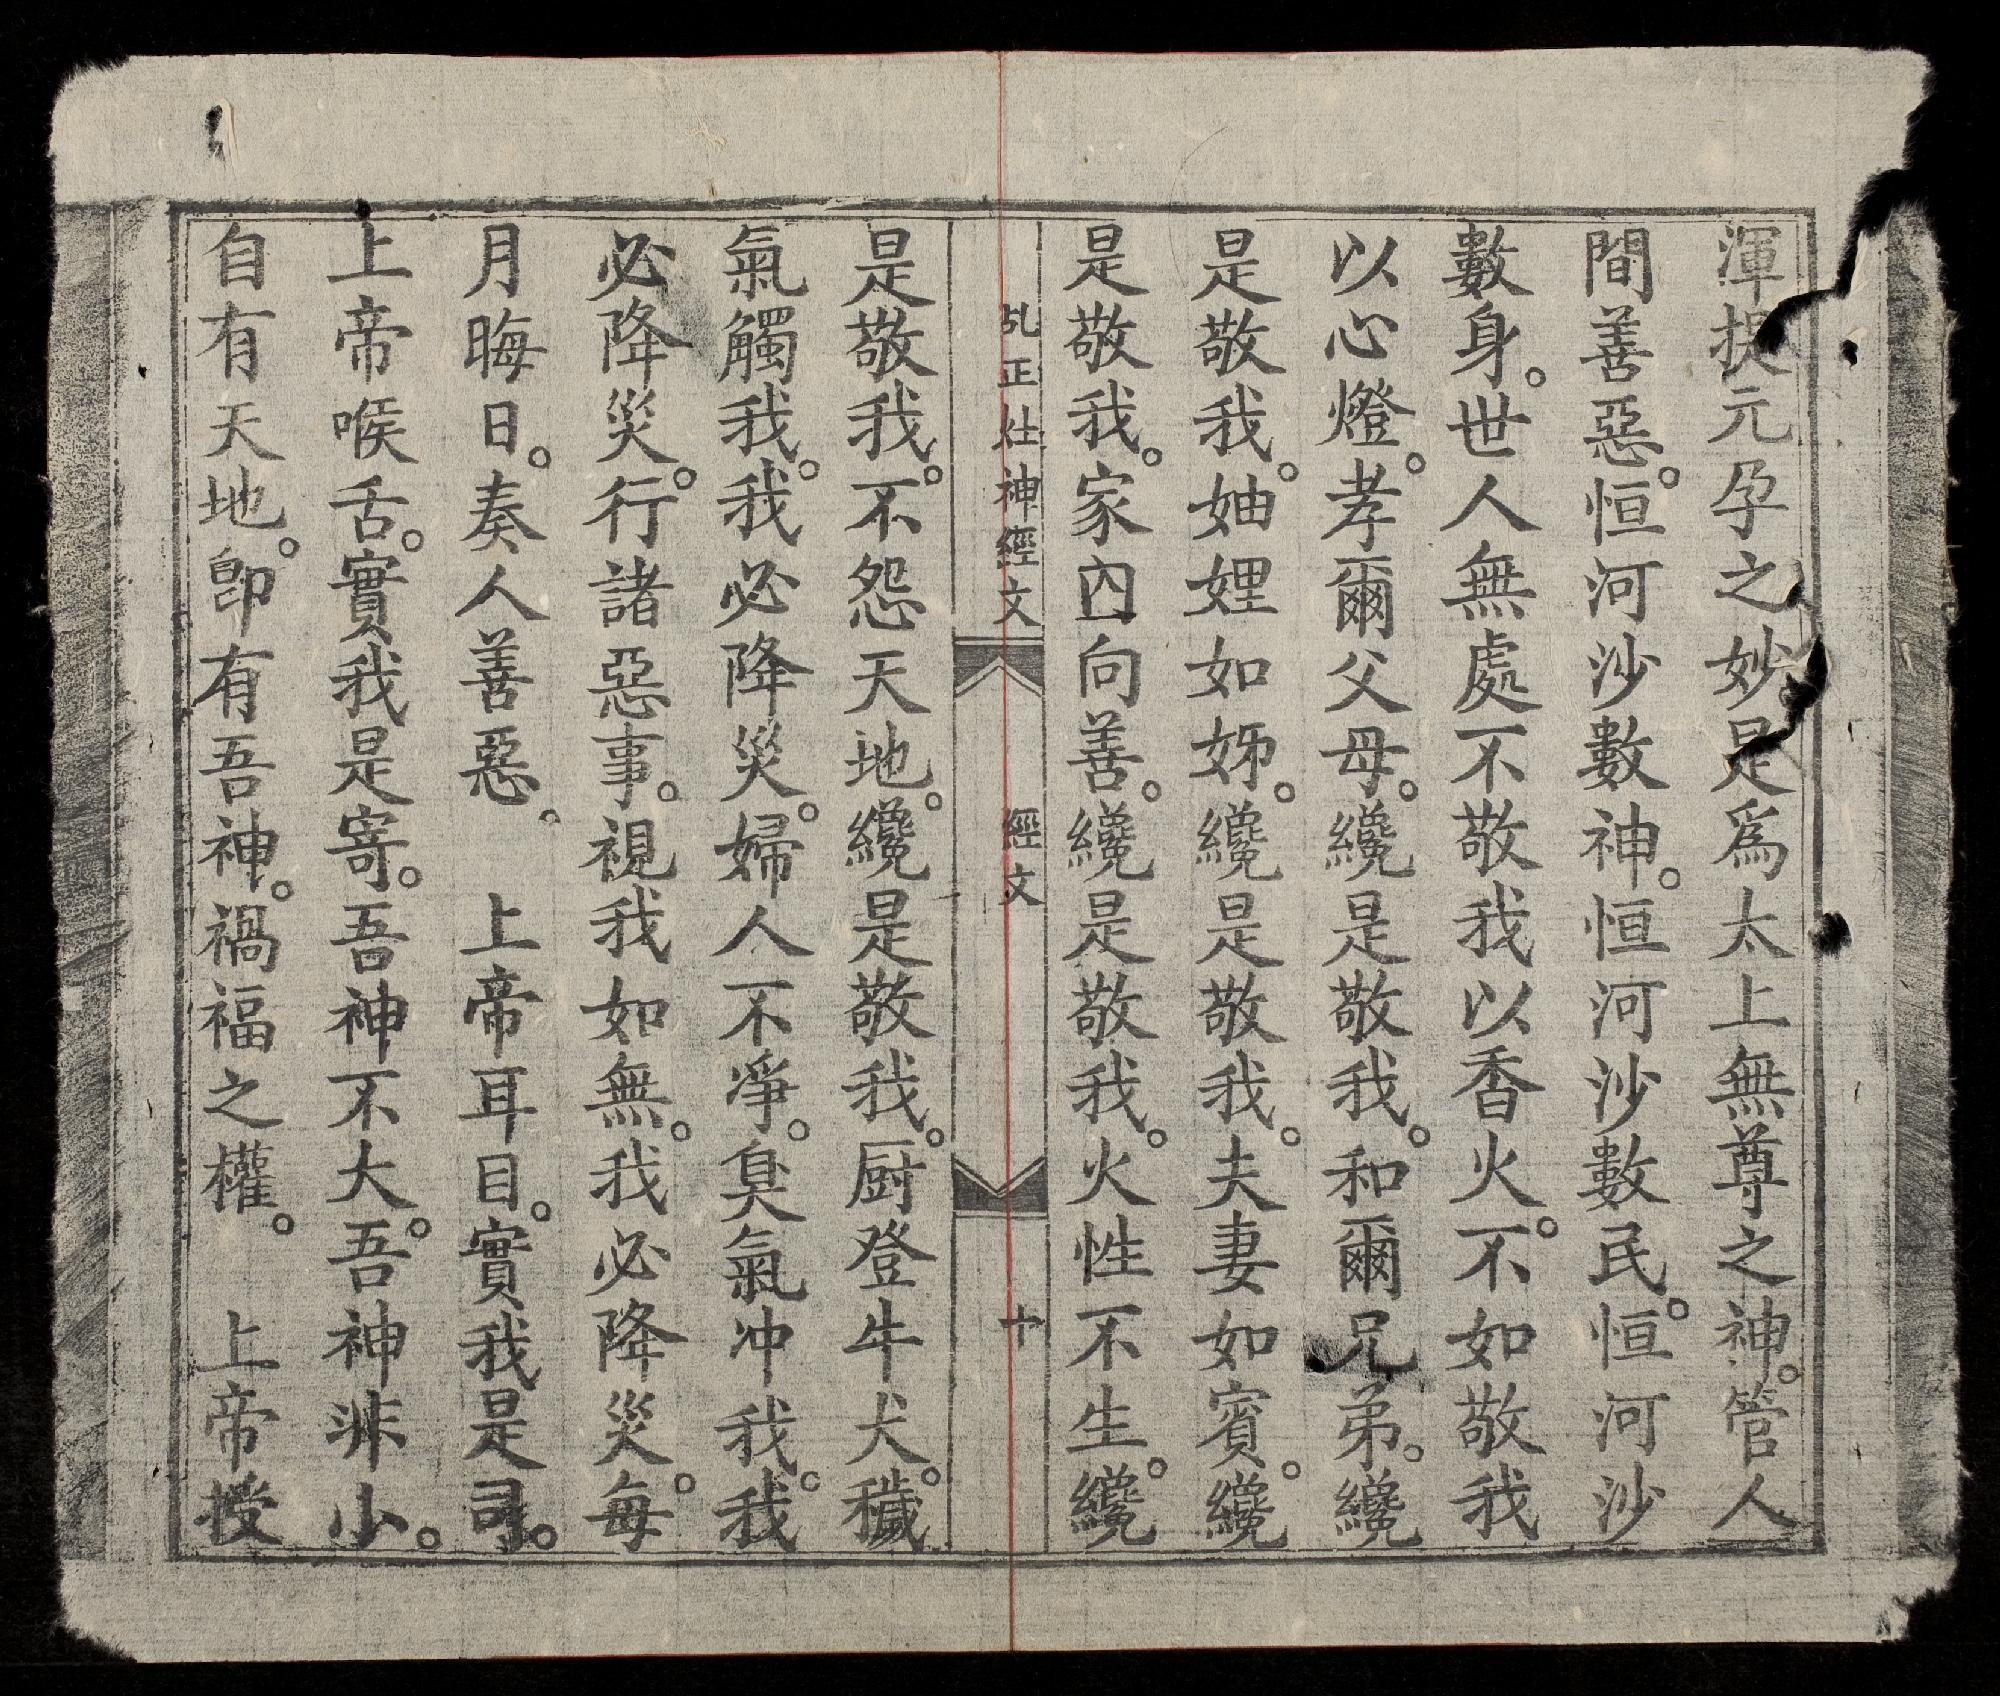 渾提元孕之妙是為太上無尊之神。管人
間善惡。恒河沙數神。恒河沙數民。恒河沙
數身。世人無處不敬我以香火。不如敬我
以心燈。孝爾父母。纔是敬我。和爾兄弟。纔
是敬我。妯娌如姊。纔是敬我。夫妻如賓。纔
是敬我。家內向善。纔是敬我。火性不生。纔
乩正灶神經文 經文 十
是敬我。不怨天地。纔是敬我。厨登牛犬。穢
氣觸我。我必降災。婦人不淨。臭氣冲我。我
必降災。行諸惡事。視我如無。我必降災。每
月晦日。奏人善惡。 上帝耳目。實我是司。
上帝喉舌。實我是寄。吾神不大。吾神非小。
自有天地。即有吾神。禍福之權。 上帝授